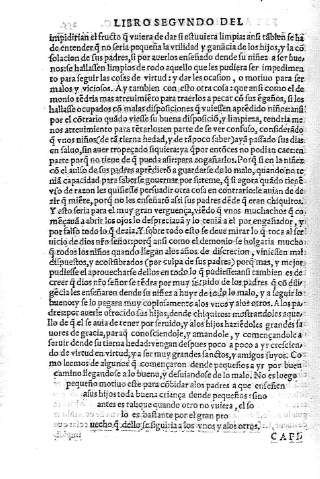 LIBRO SEGVNDO DEL
impidirian el fructo q̃ vuiera de dar si estuuiera limpia: ansi tãbien se ha
de entender q̃ no seria pequeña la vtilidad y ganãcia de los hijos, y la cõ
solacion de sus padres, si por auerlos enseñado desde su niñez a ser bue
nos: se hallassen limpios de todo aquello que les pudiera ser impedimen
to para seguir las cosas de virtud: y dar les ocasion, o motiuo para ser
malos y viciosos. A y tambien con esto otra cosa: que ansi como el de
monio tẽdria mas atreuimiẽto para traerlos a pecar cõ sus ẽgaños, si los
hallasse ocupados cõ malas disposiciones q̃ vuiessen aprẽdido niños: ansi
por el cõtrario quãdo viesse su buena disposiciõ, y limpieza, tendria me
nos atreuimiento para tẽtarlos en parte de se ver confuso, considerãdo
q̃ vnos niños (de tã tierna hedad, y de tã poco saber) ayã passado sus dias
en saluo, sin auer tropeçado siquiera: ya q̃ por entõces no podian caer en
parte porq̃ no tiene de q̃ pueda asir para engañarlos. Porq̃ si en la niñez
cõ el auiso de sus padres aprẽdierõ a guardarse de lo malo, quando no te
niã capacidad para saberse gouernar por si: creme, q̃ si agora quãdo tienẽ
vso de razon les quisiesse persuadir otra cosa en contrario: le auian de de
zir q̃ miẽte, porq̃ no les enseñarõ assi sus padres dẽde q̃ eran chiquitos.
Y esto seria para el muy gran verguença, viẽdo q̃ vnos muchachos q̃ co
mẽçauã a abrir los ojos lo despreciauã y lo teniã a el por engañador, y
por falso todo lo q̃ dezia. Y sobre todo esto se deue mirar lo q̃ toca al ser
uicio de dios nr̃o señor: porq̃ ansi como el demonio se holgaria mucho
q̃ todos los niños quando llegan alos años de discrecion, viniessen mal
dispuestos, y acostũbrados (por culpa de sus padres) porq̃ mas, y mejor
pudiesse el aprouecharse dellos en todo lo q̃ pudiesse: ansi tambien es de
creer q̃ dios nr̃o señor se tẽdra por muy seruido, de los padres q̃ cõ dili
gẽcia les enseñaron dende su niñez a huyr de todo lo malo, y a seguir lo
bueno: y se lo pagara muy copiosamente alos vnos y alos otros. A los pa
dres por auerle ofrecido sus hijos, dende chiquitos mostrandoles aque
llo de q̃ el se auia de tener por seruido, y alos hijos haziẽdoles grandes fa
uores de gracia, para q̃ conosciendole, y amandole, y començandole a
seruir dende su tierna hedad: vengan despues poco a poco a yr crescien
do de virtud en virtud, y a ser muy grandes sanctos, y amigos suyos. Co
mo leemos de algunos q̃ començaron dende pequeños a yr por buen
camino llegandose a lo bueno, y desuiandose de lo malo. No es luego
pequeño motiuo este para cõbidar alos padres a que enseñen
a sus hijos toda buena criança dende pequeños: sino
antes es tal que quando otro no vuiera, el so
lo es bastante por el gran pro
uecho q̃ dello se siguiria a los vnos y alos otros.
CAPI